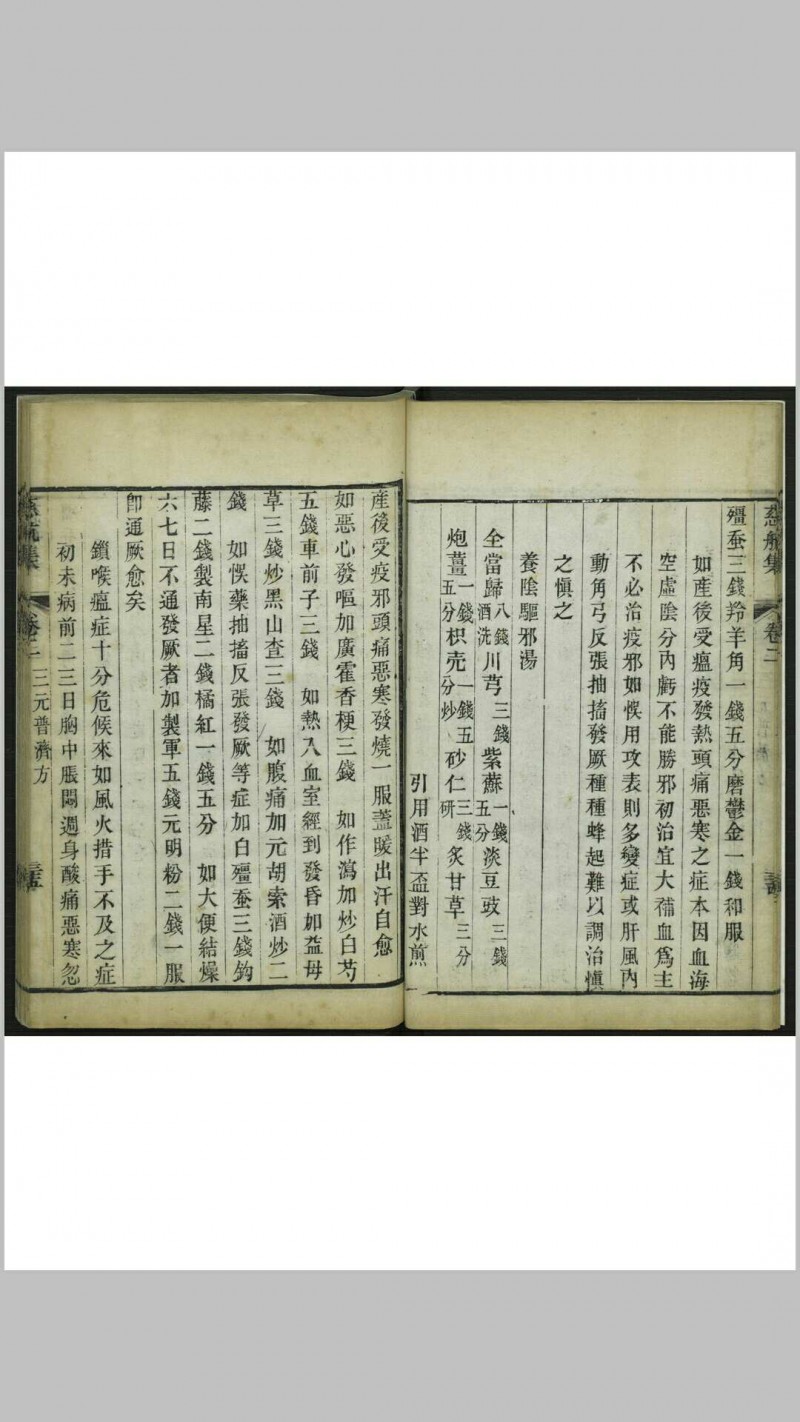 慈航集
卷二
殭蚕三錢羚羊角一錢五分磨鬱金一錢和服
如產後受瘟疫發熱頭痛惡寒之症本因血海
空虛陰分內虧不能勝邪初治宜大補血爲主
不必治疫邪如悮用攻表則多變症或肝風內
動角弓反張抽搐發厥種種蜂起難以調治愼
之愼之
養陰驅邪湯
全當歸八錢酒洗川芎三錢紫蘇一錢五分淡豆豉三錢
炮薑一錢五分枳壳一錢五分炒砂仁三錢研炙甘草三分
引用酒半盃對水煎
產後受疫邪頭痛惡寒發燒一服蓋暖出汗自愈
如惡心發嘔加廣霍香梗三錢 如作瀉加炒白芍
五錢車前子三錢 如熱入血室經到發昏加益母
草三錢炒黑山查三錢 如腹痛加元胡索酒炒二
錢 如悮藥抽搐反張發厥等症加白殭蚕三錢鈎
藤二錢製南星二錢橘紅一錢五分 如大便結燥
六七日不通發厥者加製軍五錢元明粉二錢一服
卽通厥愈矣
鎖喉瘟症十分危候來如風火措手不及之症
初未病前二三日胸中脹悶遇身酸痛惡寒忽
慈航集
卷二
三元普濟方